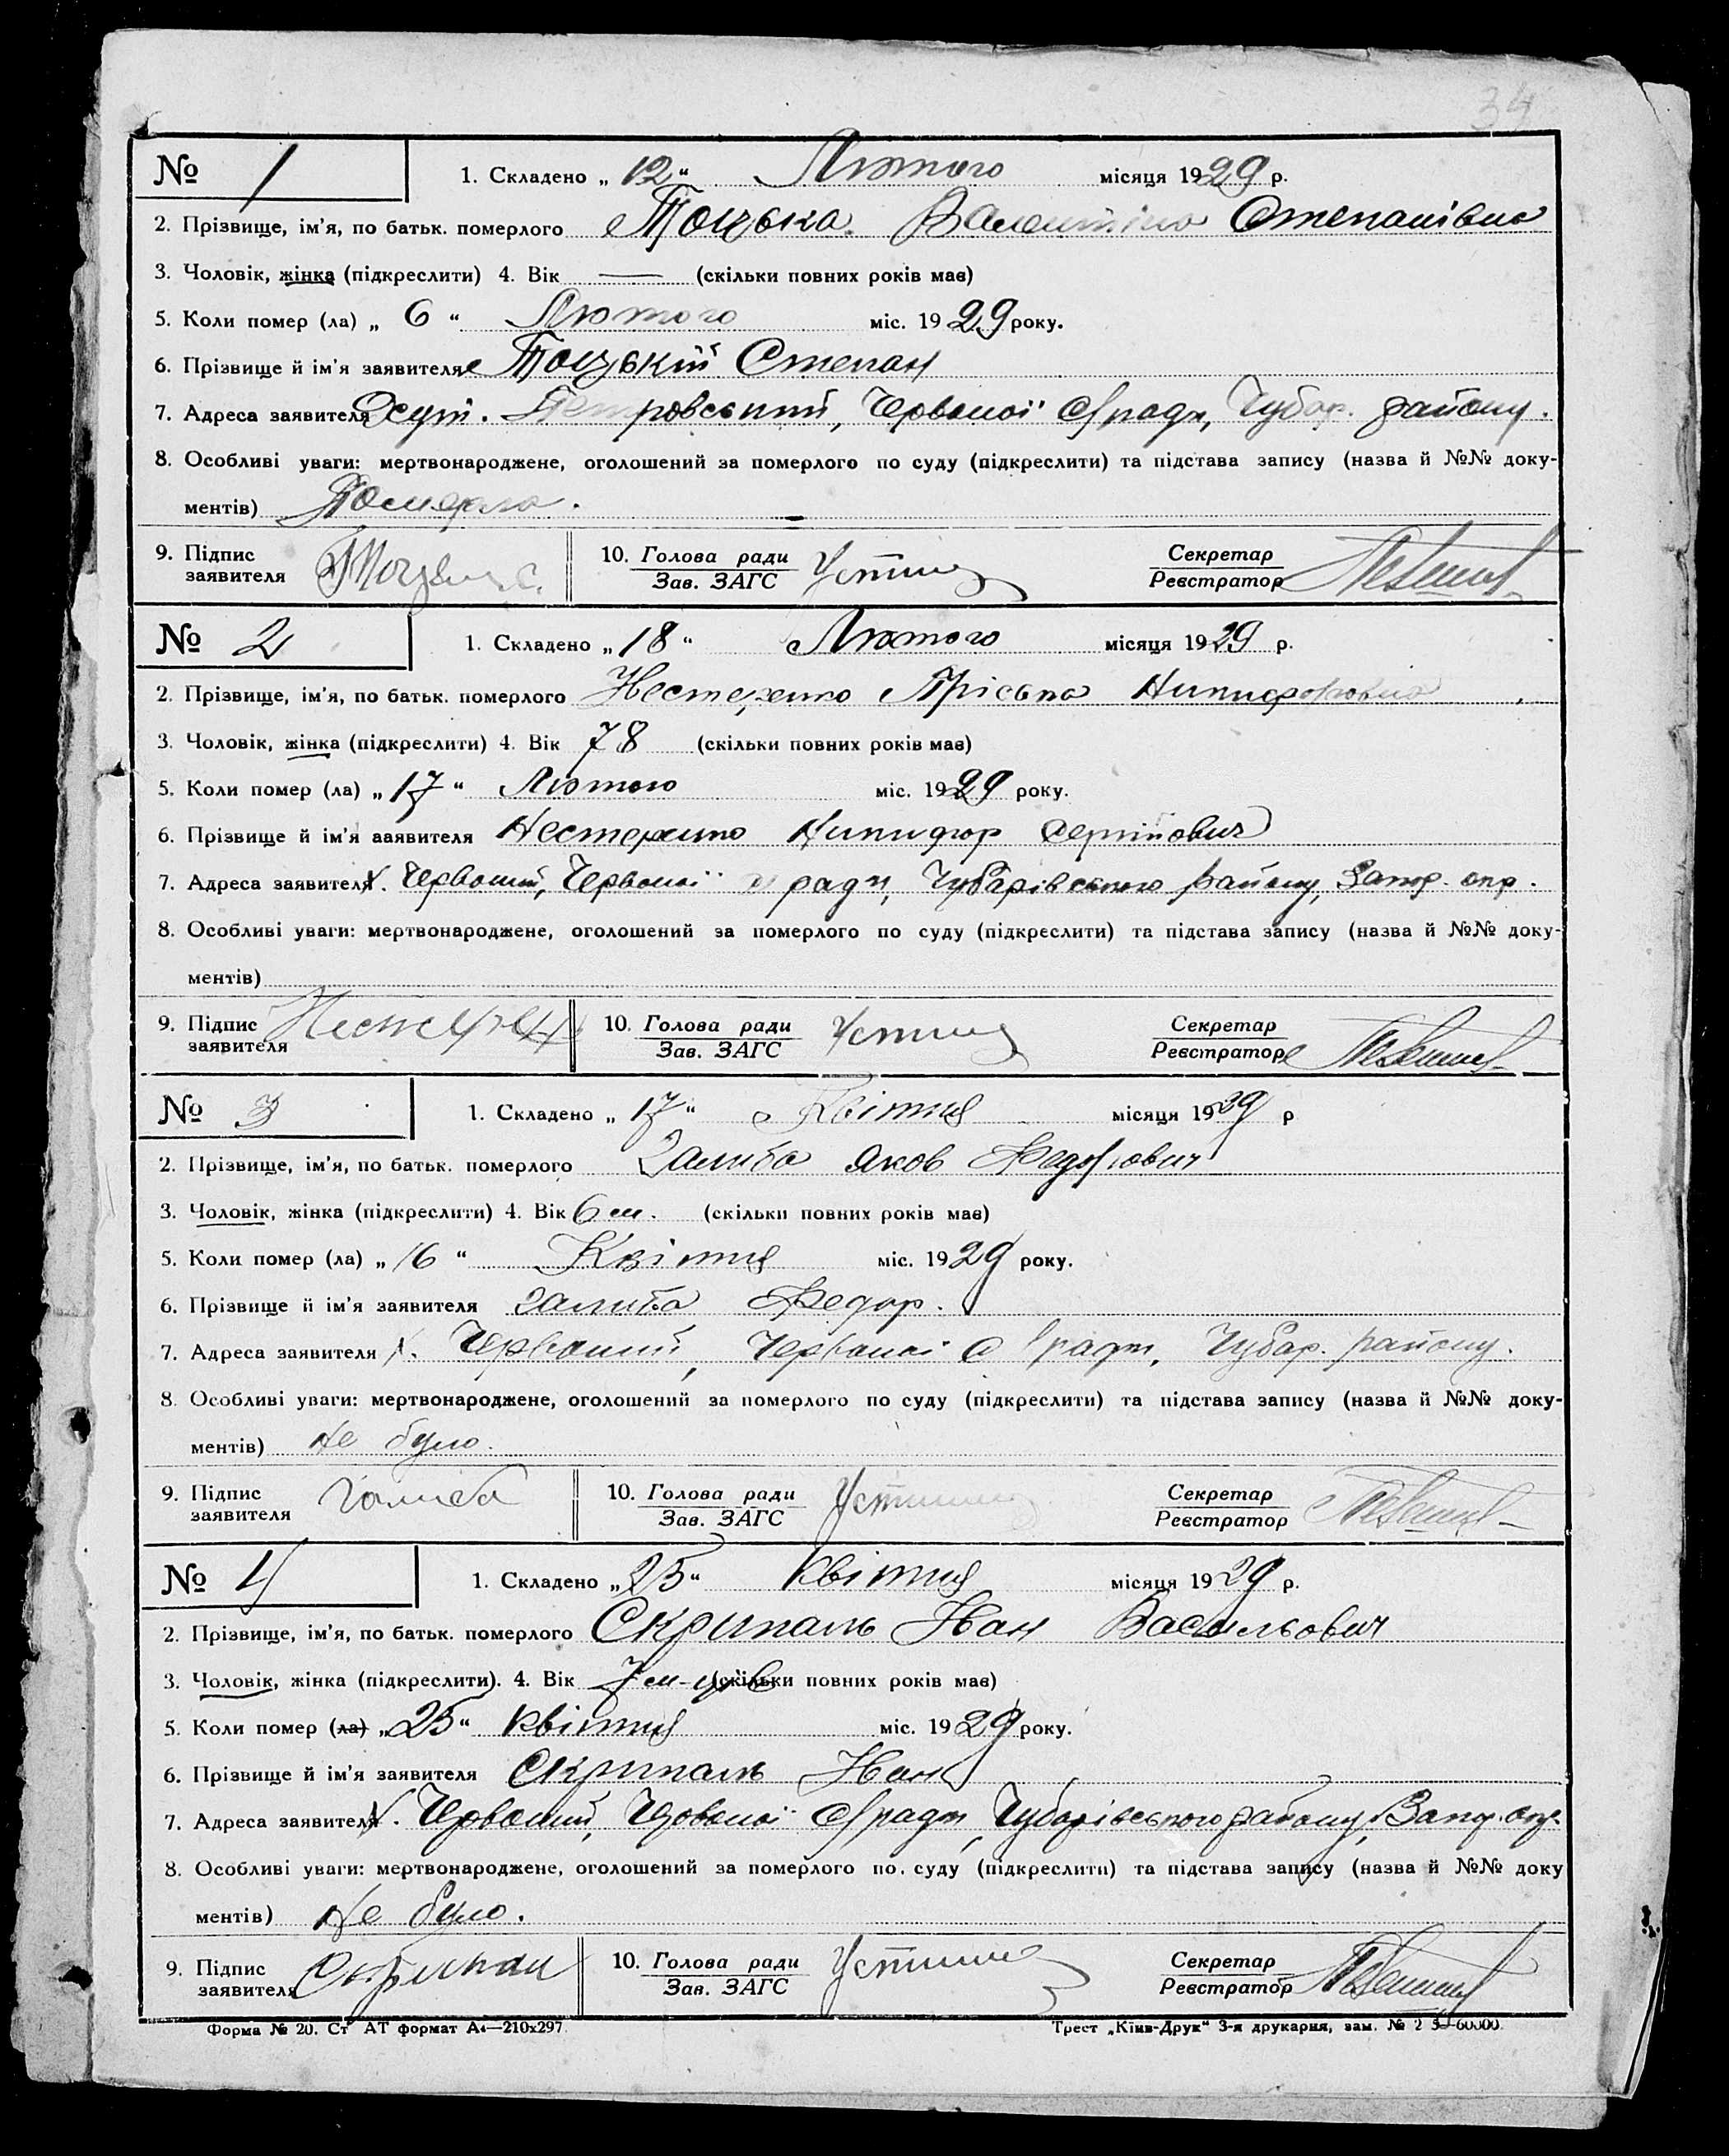 34
№ 1 1. Складено „ 12 “ Лютого місяця 1929 р.
2. Прізвище, ім'я, по батьк. померлого Тоцька Валентіна Степанівна
3. Чоловік, жінка (підкреслити) 4. Вік — (скільки повних років має)
5. Коли помер (ла) „ 6 “ Лютого міс. 1929 року.
6. Прізвище й ім'я заявителя Тоцький Степан
7. Адреса заявителя Хут. Петровський, Червоної с/ради, Чубар. району.
8. Особливі уваги: мертвонароджене, оголошений за померлого по суду (підкреслити) та підстава запису (назва й №№ доку-
ментів) Померла.
9. Підпис заявителя 10. Голова ради Зав. ЗАГС Секретар Реєстратор
№ 2 1. Складено „ 18 “ Лютого місяця 1929 р.
2. Прізвище, ім'я, по батьк. померлого Нестеренко Пріська Никифоровна
3. Чоловік, жінка (підкреслити) 4. Вік 78 (скільки повних років має)
5. Коли помер (ла) „ 17 “ Лютого міс. 1929 року.
6. Прізвище й ім'я заявителя Нестеренко Никифор Сергійович
7. Адреса заявителя х. Червоний, Червоної с/ради, Чубарівського району, Запор. окр.
8. Особливі уваги: мертвонароджене, оголошений за померлого по суду (підкреслити) та підстава запису (назва й №№ доку-
ментів)
9. Підпис заявителя 10. Голова ради Зав. ЗАГС Секретар Реєстратор
№ 3 1. Складено „ 17 “ Квітня місяця 1929 р
2. Прізвище, ім'я, по батьк. померлого Галиба Яков Федорович
3. Чоловік, жінка (підкреслити) 4. Вік 6 м. (скільки повних років має)
5. Коли помер (ла) „ 16 “ Квітня міс. 1929 року.
6. Прізвище й ім'я заявителя Галиба Федор.
7. Адреса заявителя х. Червоний, Червоної с/ради, Чубар. району.
8. Особливі уваги: мертвонароджене, оголошений за померлого по суду (підкреслити) та підстава запису (назва й №№ доку-
ментів) Не було.
9. Підпис заявителя Галиба 10. Голова ради Зав. ЗАГС Секретар Реєстратор
№ 4 1. Складено „ 25 “ Квітня місяця 1929 р.
2. Прізвище, ім'я, по батьк. померлого Скрипаль Іван Васильович
3. Чоловік, жінка (підкреслити). 4. Вік 7 м-ців (скільки повних років має)
5. Коли помер (ла) „ 25 “ Квітня міс. 1929 року.
6. Прізвище й ім'я заявителя Скрипаль Іван
7. Адреса заявителя х. Червоний, Червоної с/ради, Чубарівського району, Запор. окр.
8. Особливі уваги: мертвонароджене, оголошений за померлого по суду (підкреслити) та підстава запису (назва й №№ доку
ментів) Не було.
9. Підпис заявителя Скрипал 10. Голова ради Зав. ЗАГС Секретар Реєстратор
Форма № 20. Ст АТ формат А4—210х297 Трест „Київ-Друк“ 3-я друкарня, зам. №